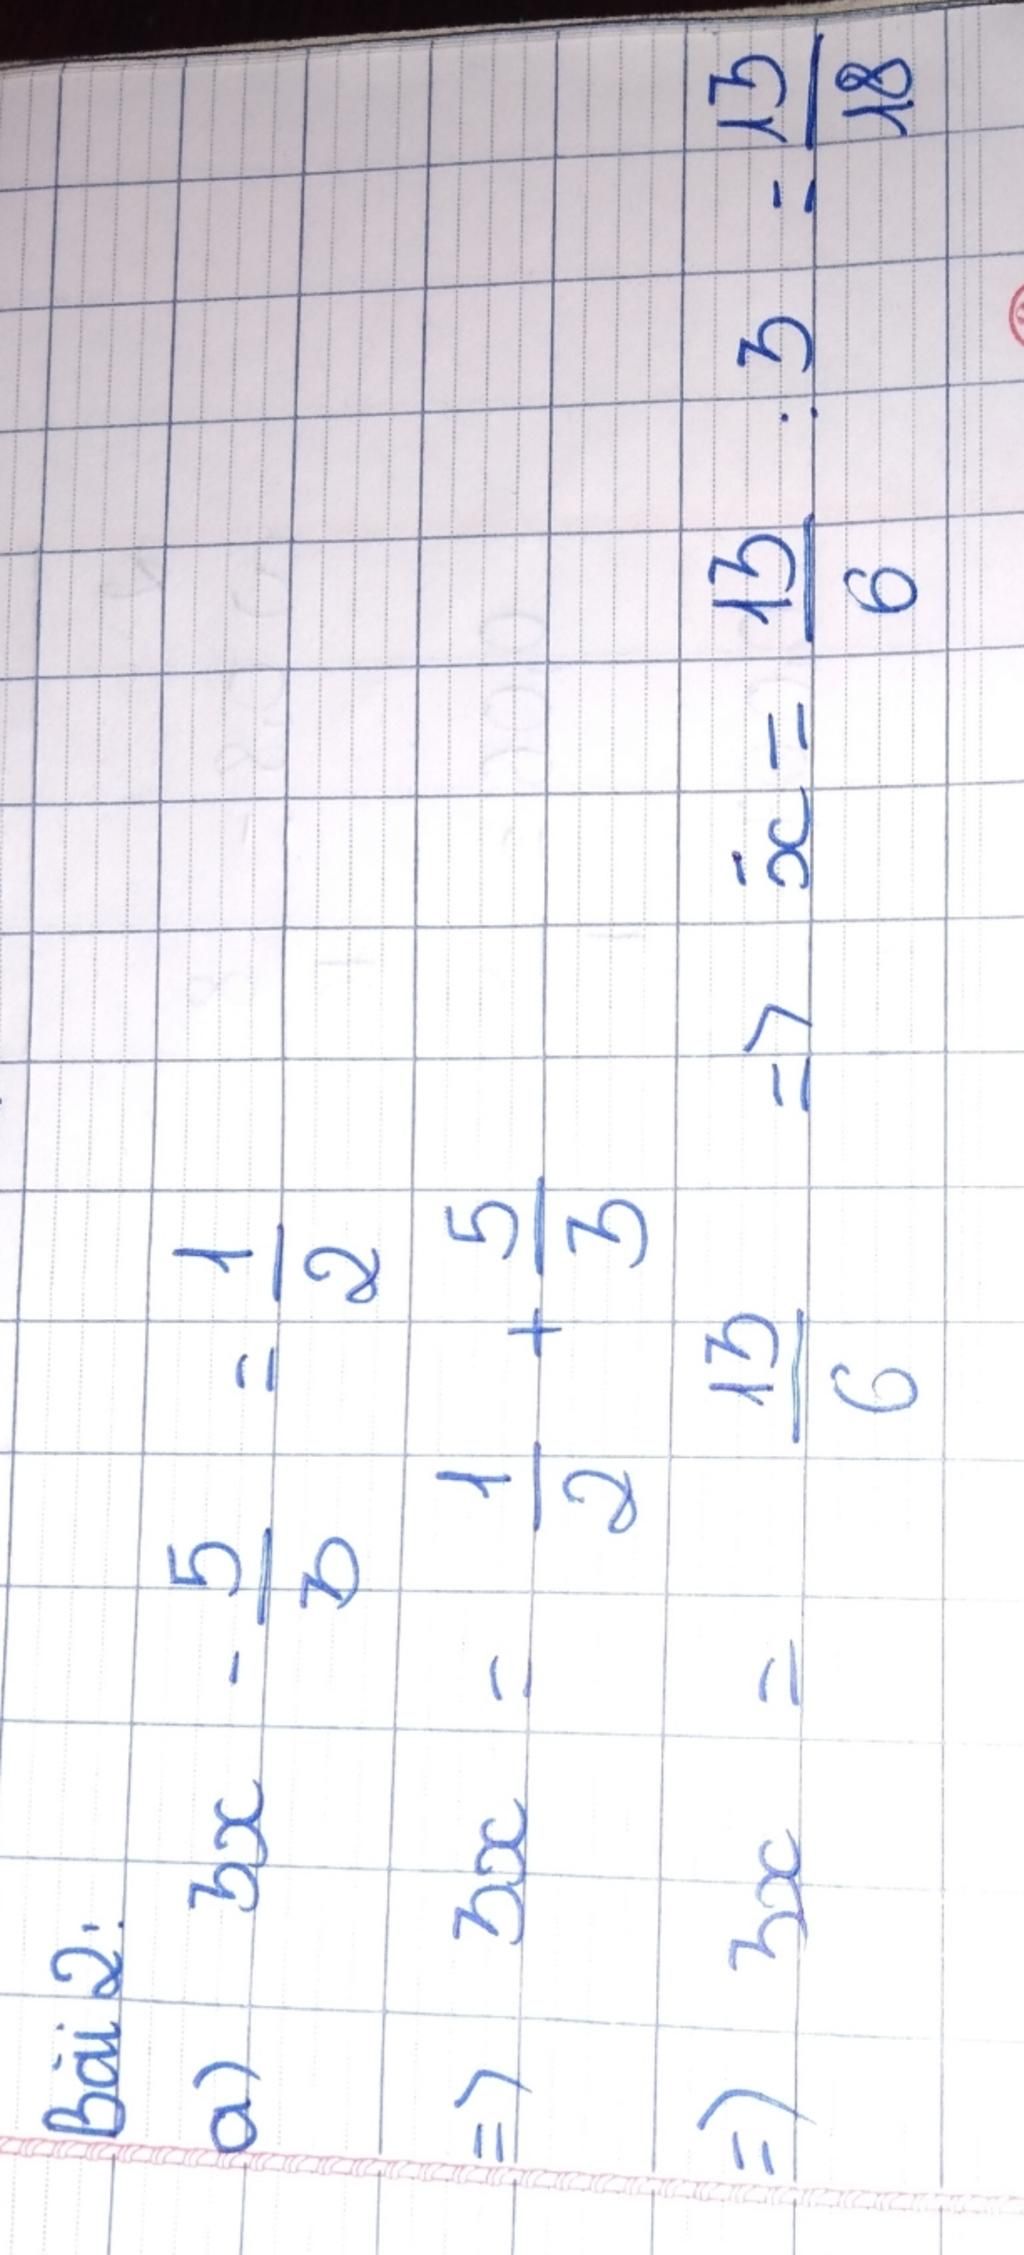 Bài 2:
a) 3x - 5/3 = 1/2
=> 3x = 1/2 + 5/3
=> 3x = 13/6 => x = 13/6 : 3 = 13/18